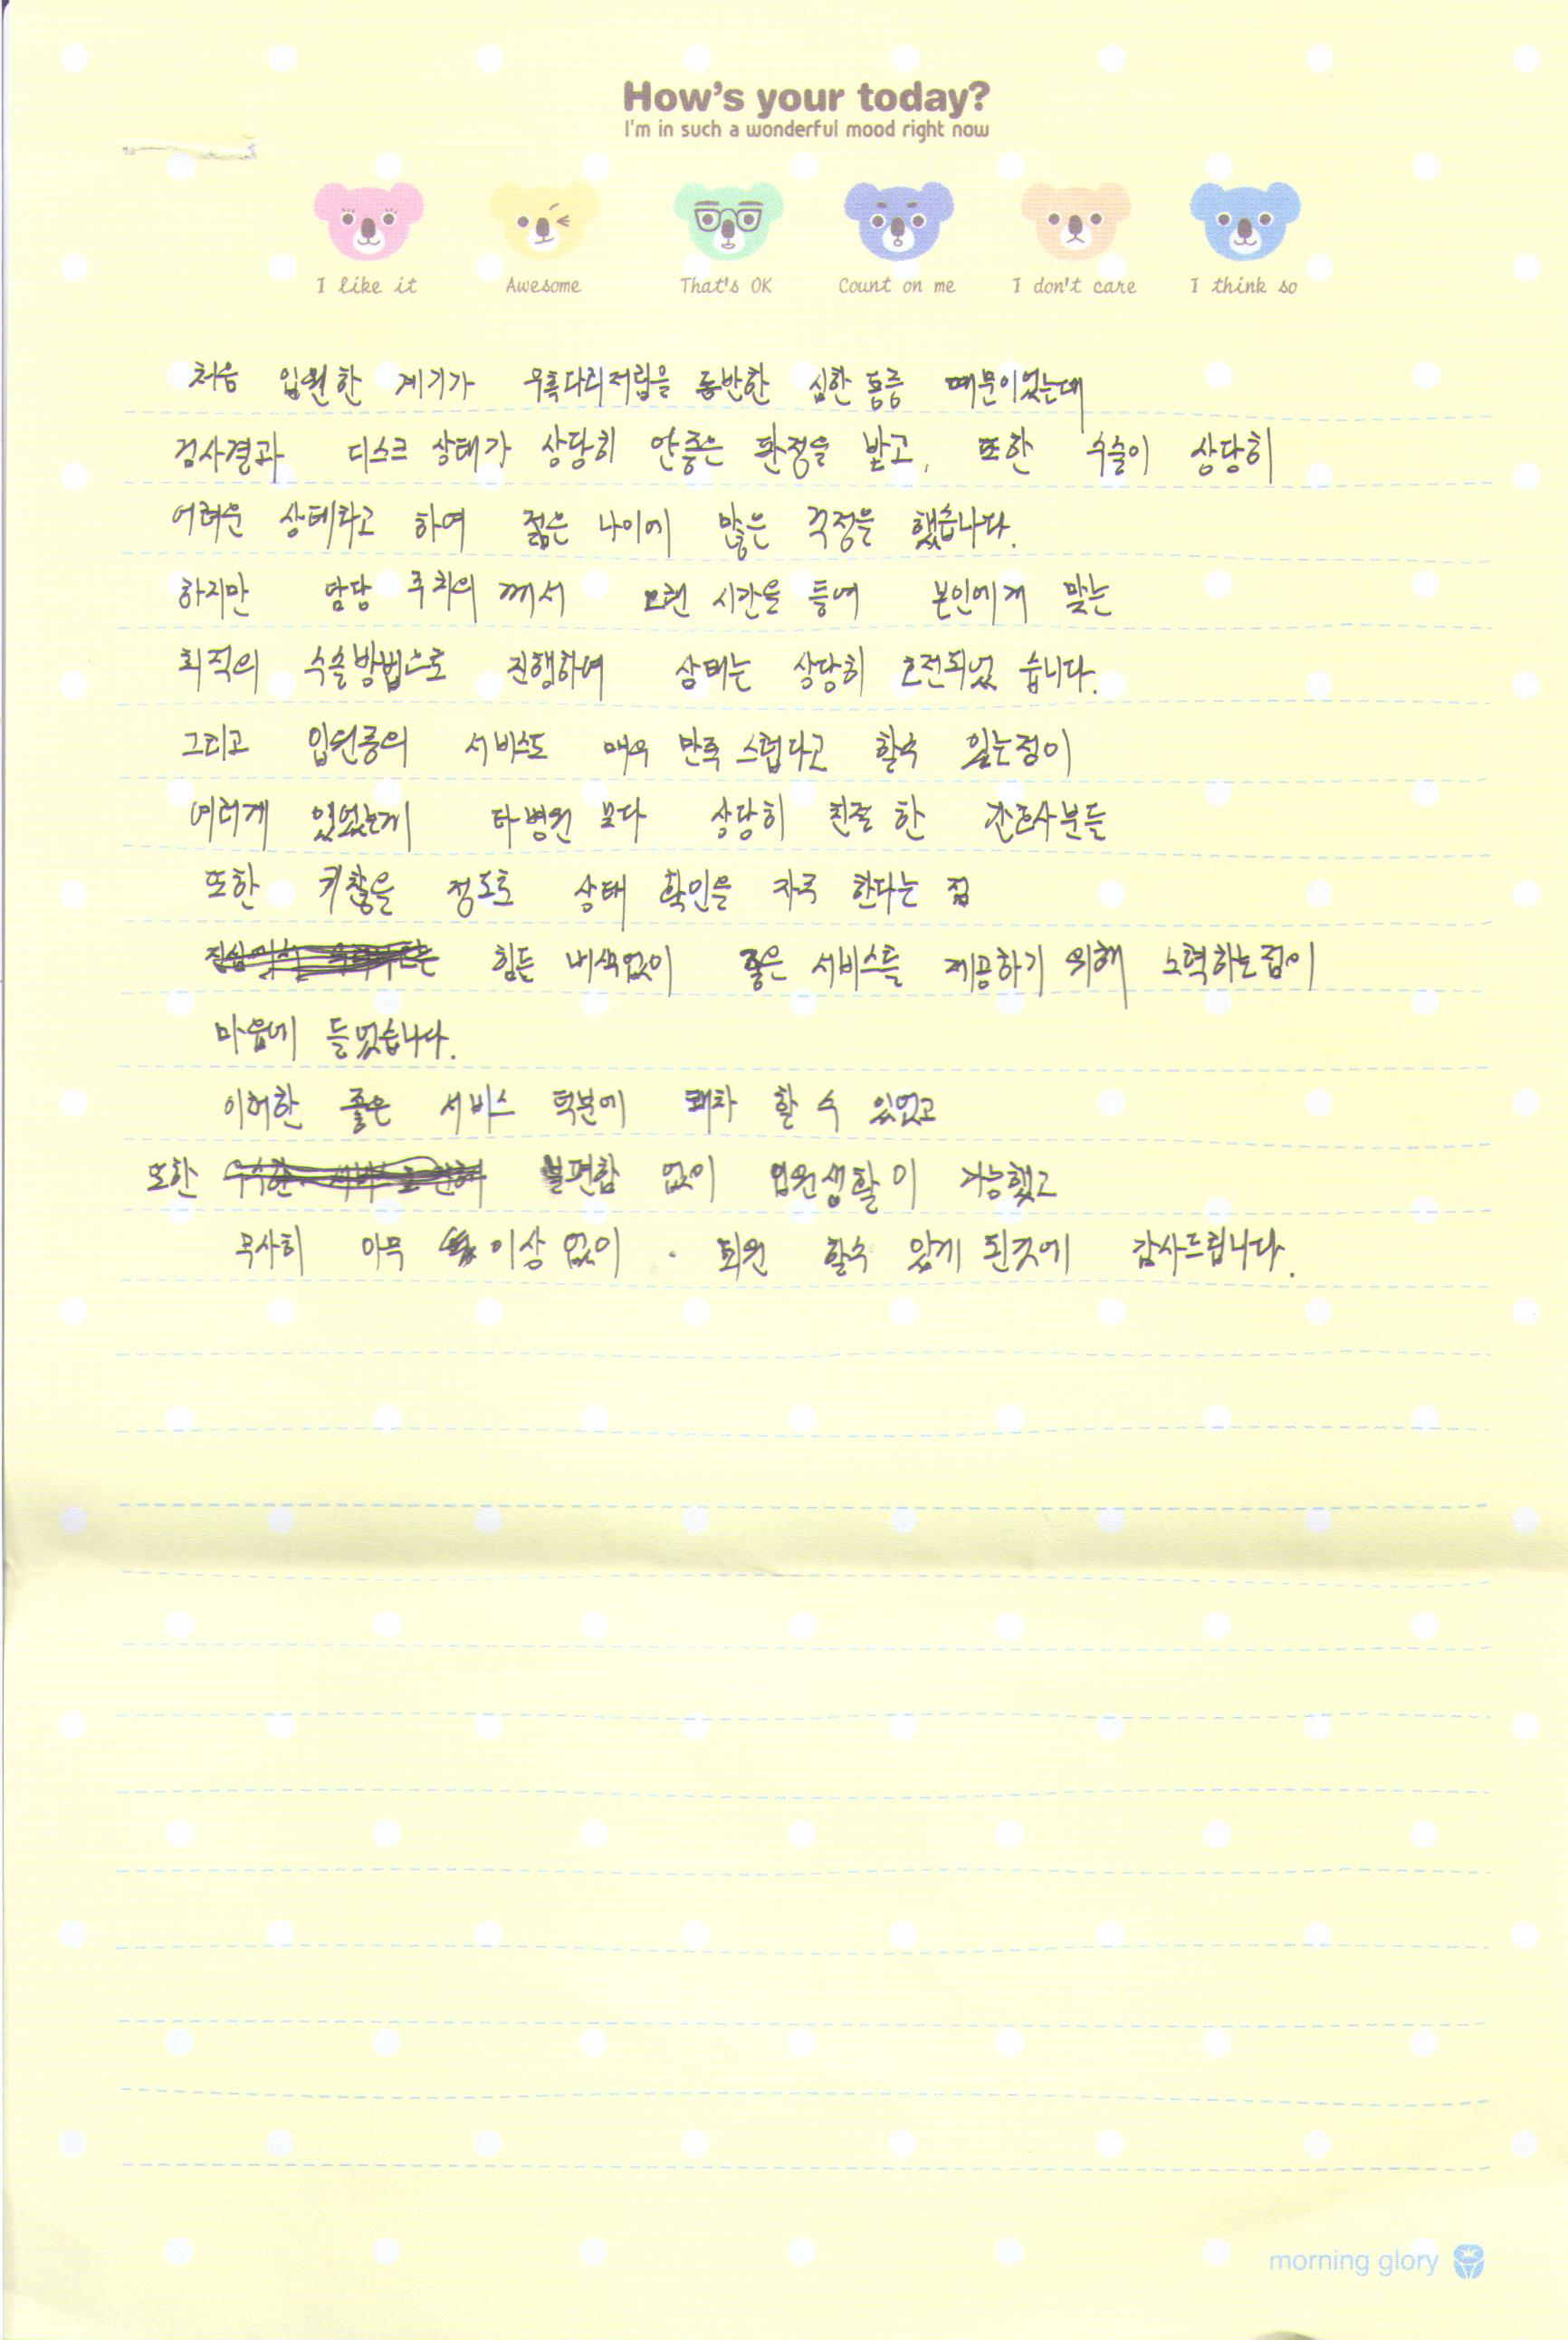 How's your today?
I'm in such a wonderful mood right now
I like it Awesome That's OK Count on me I don't care I think so
처음 입원한 계기가 우측다리저림을 동반한 심한 통증 때문이었는데
검사결과 디스크 상태가 상당히 안좋은 판정을 받고, 또한 수술이 상당히
어려운 상태라고 하여 젊은 나이에 많은 걱정을 했습니다.
하지만 담당 주치의 께서 오랜 시간을 들여 본인에게 맞는
최적의 수술방법으로 진행하여 상태는 상당히 호전되었 습니다.
그리고 입원중의 서비스도 매우 만족 스럽다고 할수 있는점이
여러게 있었는데 타병원 보다 상당히 친절 한 간호사분들
또한 귀찮을 정도로 상태 확인을 자주 한다는 점
힘든 내색없이 좋은 서비스를 제공하기 위해 노력하는점이
마음에 들었습니다.
이러한 좋은 서비스 덕분에 쾌차 할 수 있었고
또한 불편함 없이 입원생활이 가능했고
무사히 아무 이상 없이 퇴원 할수 있게 된것에 감사드립니다.
morning glory